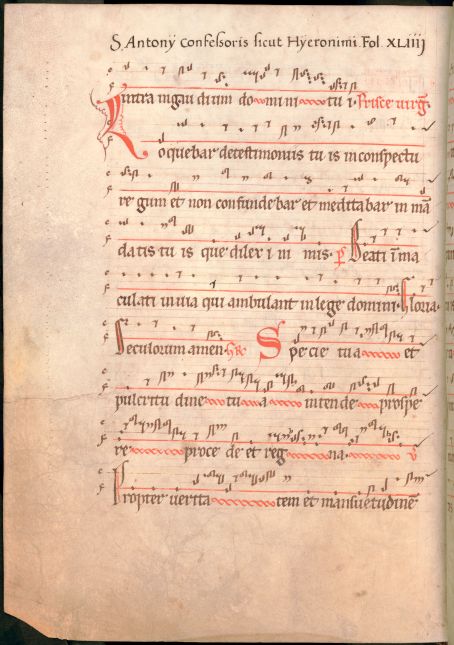 S. Antonÿ confessoris sicut Hÿeronimi. Fol. XLIIIJ
Intra in gau dium do mi ni tu i. Prisce uirg̃.
Loquebar de testimoniis tu is in conspectu
re gum et non confunde bar et medita bar in mã
datis tu is que dilex i ni mis. p̃ Beati ĩma
culati in uia qui ambulant in lege domini. Gloria.
Seculorum amen. Gr̃. Spe cie tu a et
pulcritu dine tu a inten de prospe
re proce de et reg na. v̄
Propter uerita tem et mansuetudinẽ